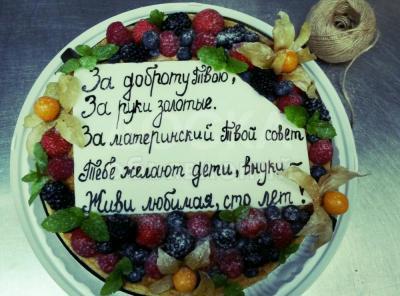 За доброту Твою,
За руки золотые.
За материнский Твой совет
Тебе желают дети, внуки ~
Живи любимая, сто лет!